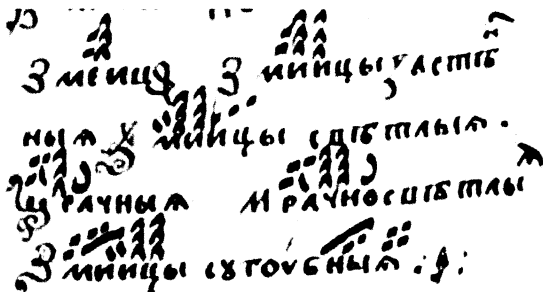 Змеица Змиицы частѣ
ныя Змиицы свѣтлыя.
Мрачныя Мрачносвѣтлыя
Змиицы сꙋгоубныя